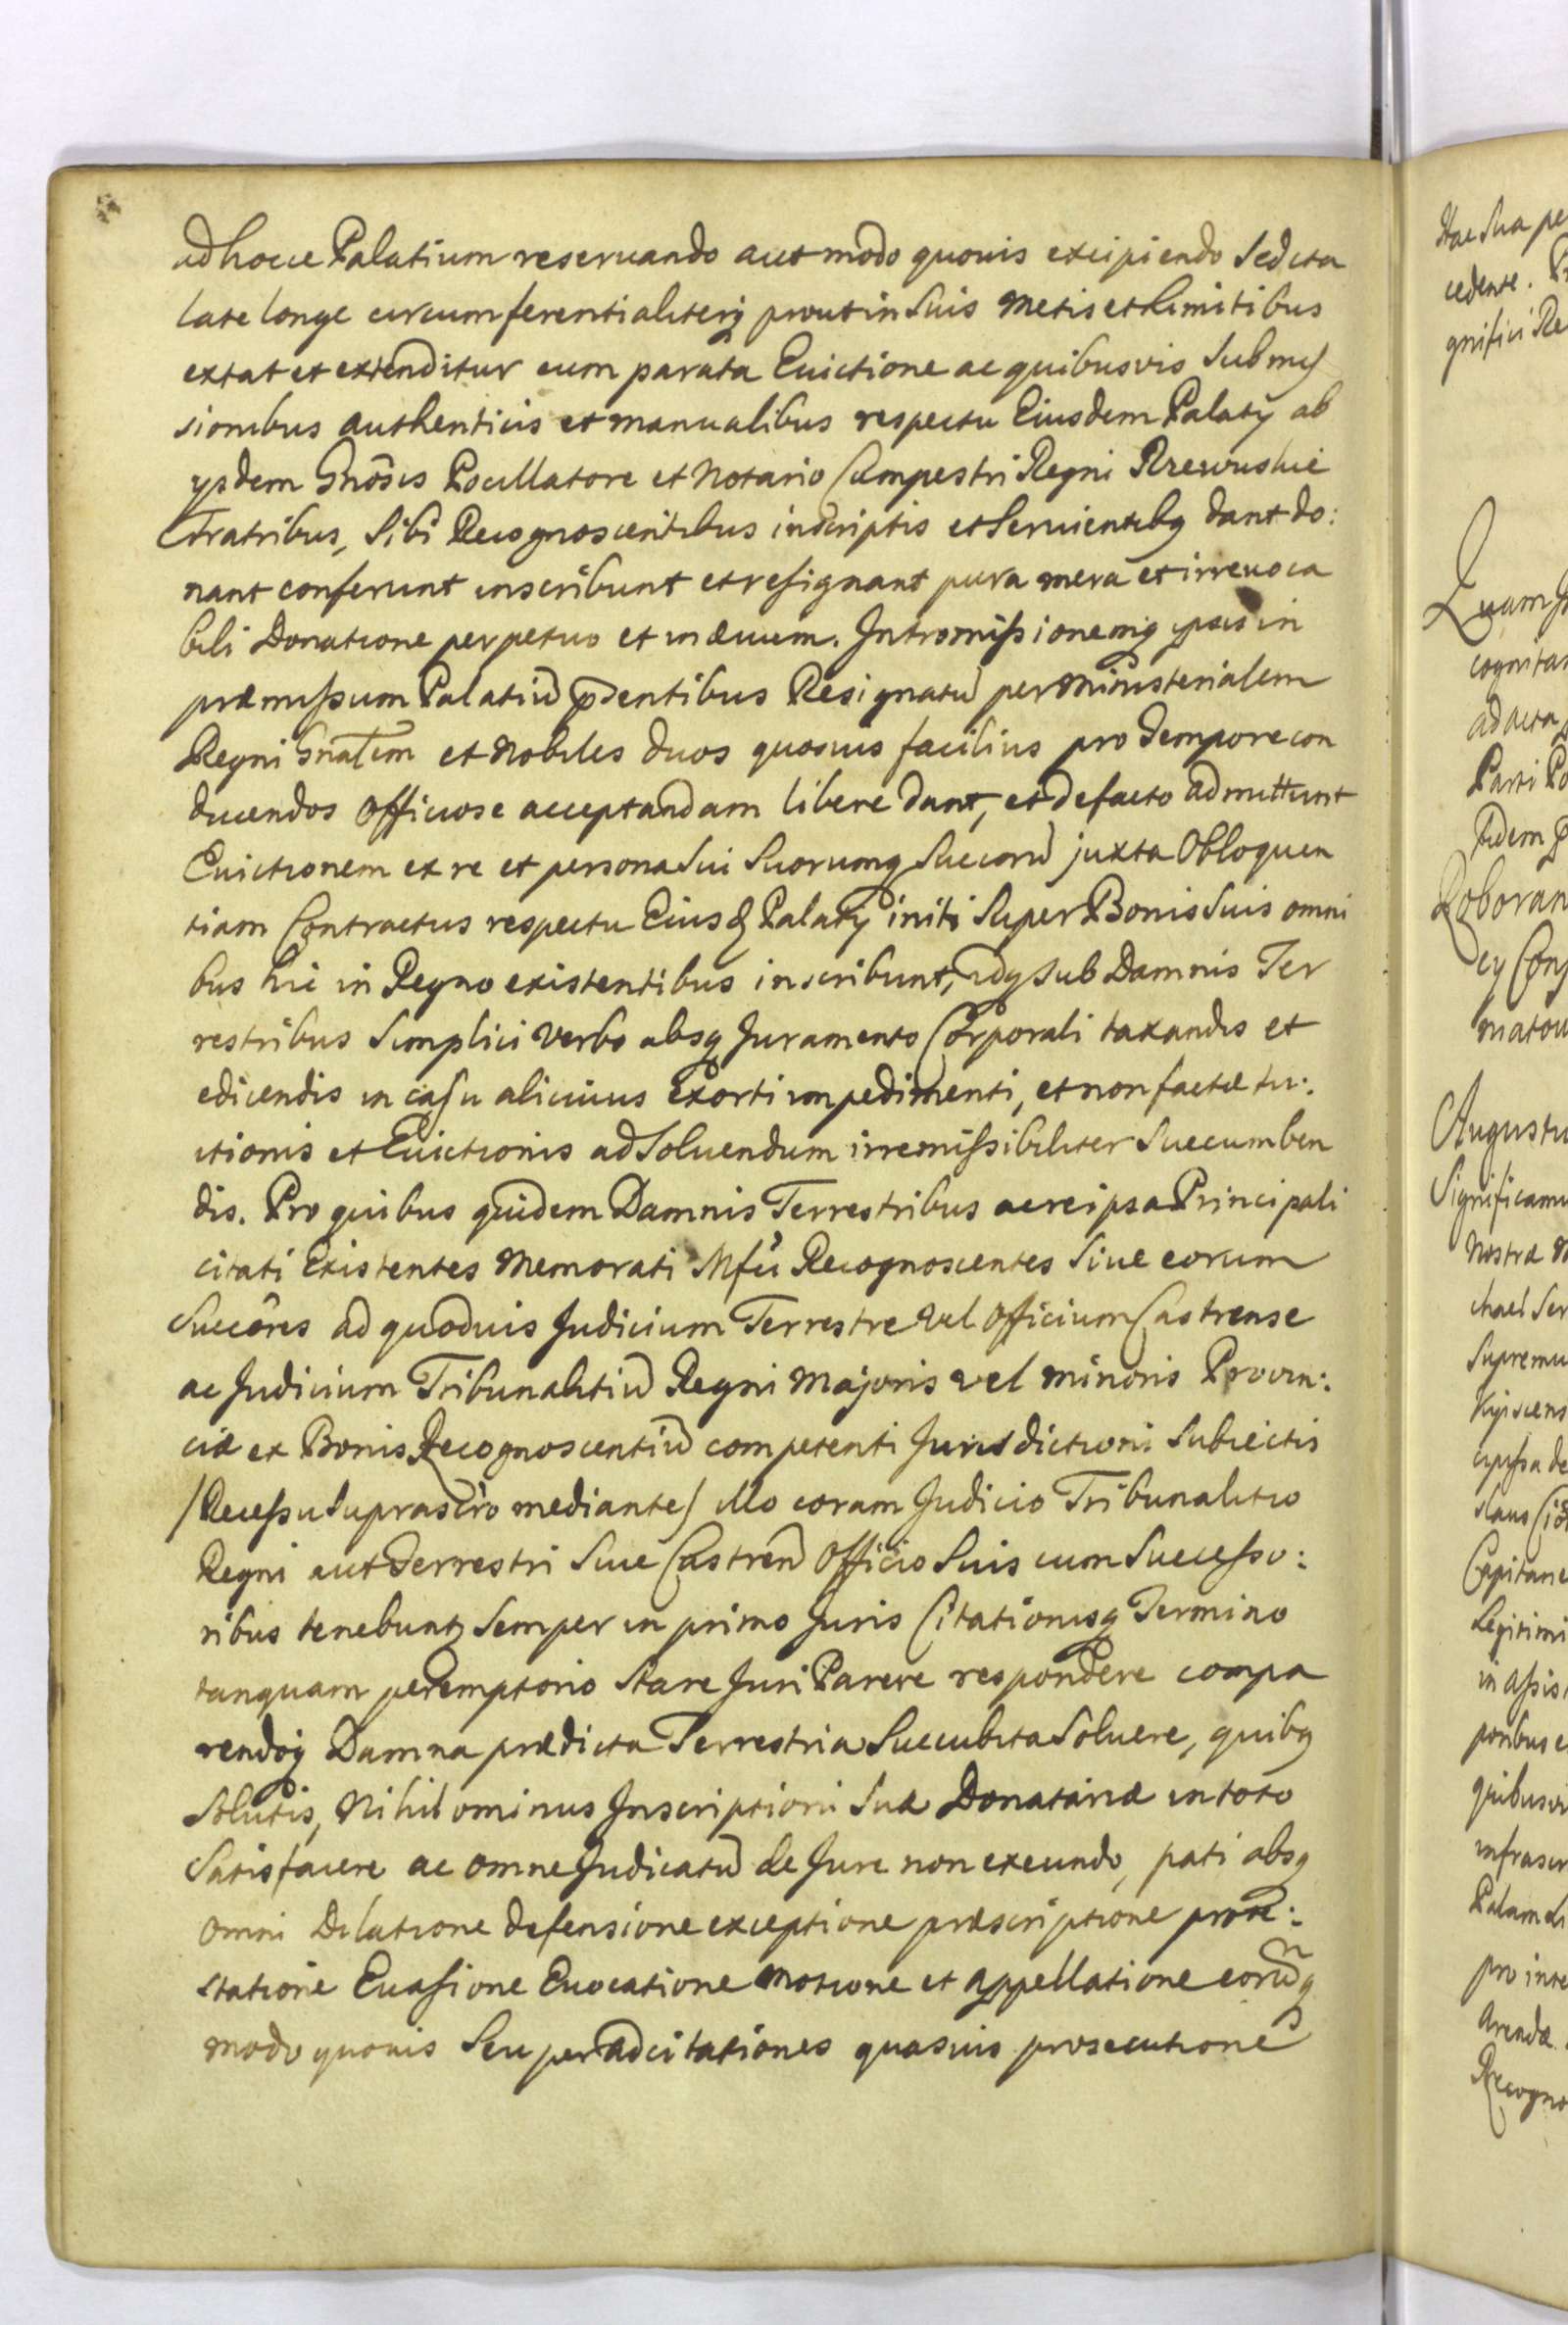 ad hocce Palatium reseruando aut modo quouis excipiendo Sed ita
late longe circumferentialiterq prout in Suis Metis et Limitibus
extat et extenditur cum parata Euictione ac quibusvis Submis
sionibus authenticis et manualibus respectu Eiusdem Palaty ab
ysdem Gnosis Pocillatore et Notario Campestri Regni Rzewuskie
Fratribus, Sibi Recognoscentibus inscriptis et Seruientibq dant do:
nant conferunt inscribunt et resignant pura mera et irreuoca
bili Donatione perpetuo et in æuum. Intromissionemq ipsis in
præmissum Palatiu pnsentibus Resignatu per Ministerialem
Regni Gnalem et Nobiles duos quosuis facilius pro tempore con
ducendos Officiose acceptandam libere dant, et de facto admittunt
Euictionem ex re et persona Sui Suorumq Succoru juxta Obloquen
tiam Contractus respectu Eiusd Palaty initi Super Bonis Suis omni
bus hic in Regno existentibus inscribunt, idq sub Damnis Ter
restribus Simplici Verbo absq Juramento Corporali taxandis et
edicendis in casu alicuius Exorti impedimenti, et non factæ tu:
itionis et Euictionis ad Soluendum irremissibiliter Succumben
dis. Pro quibus quidem Damnis Terrestribus ac re ipsa Principali
citati Existentes Memorati Mfci Recognoscentes Siue eorum
Succôres ad quoduis Judicium Terrestre vel Officium Castrense
ac Judicium Tribunalitiu Regni Majoris vel minoris Provin:
ciæ ex Bonis Recognoscentiu competenti Jurisdictioni Subiectis
/Recessu Suprascro mediante/ Illo coram Judicio Tribunalitio
Regni aut Terrestri Siue Castren Officio Suis cum Successo:
ribus tenebunt Semper in primo Juris Citationisq Termino
tanquam peremptorio Stare Juri Parere respondere compa
rendoq Damna prædicta Terrestria Succubita Soluere, quibq
Solutis, Nihilominus Inscriptioni Suæ Donatariæ in toto
Satisfacere ac omne Judicatu de Jure non exeundo, pati absq
omni Dilatione defensione exceptione præscriptione prote:
statione Euasione Euocatione Motione et appellatione eorumq
modo quouis Seu per adcitationes quasuis prosecutione
Hac Sua pe
cedente.
gnifici Re
Quam
cognitas
ad acta
Parti Po
fidem
Roboran
cy Cons
matou
Augustu
Significamu
Nostræ
chael Ser
Supremu
Kijoviens
cypssa de
slaus
Capitane
Legitimi
in assis
poribus e
quibusu
infrascr
Palam
pro inte
Arendæ
Recogno